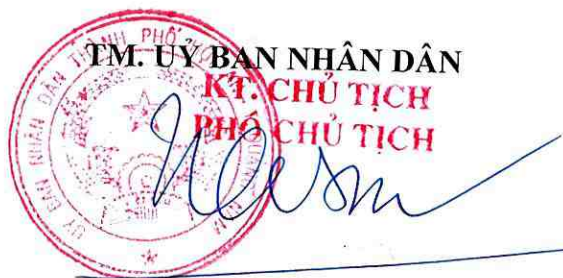 TM. UỶ BAN NHÂN DÂN
KT. CHỦ TỊCH
PHÓ CHỦ TỊCH
UỶ BAN NHÂN DÂN THÀNH PHỐ